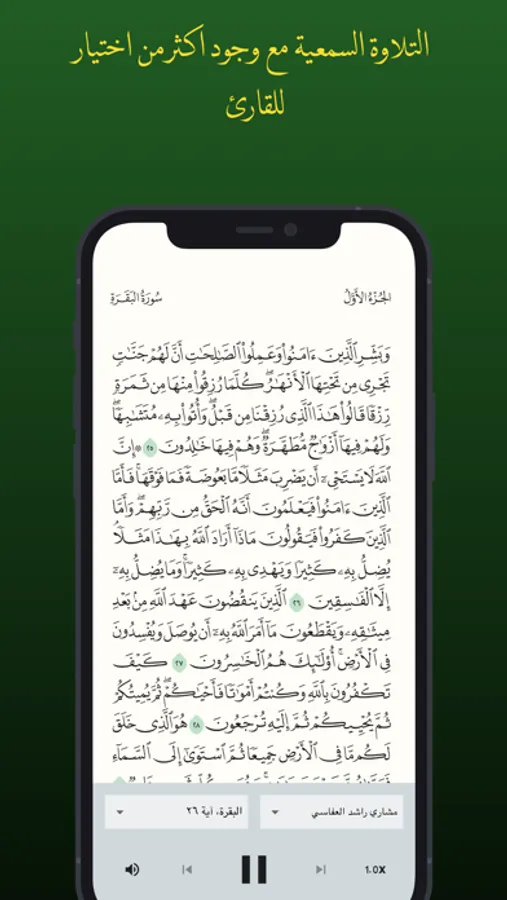 التلاوة السمعية مع وجود اكثر من اختيار
للقارئ
الجُزْءُ الأَوَّلُ
سُورَةُ البَقَرَةِ
وَبَشِّرِ الَّذِينَ ءَامَنُوا وَعَمِلُوا الصَّالِحَاتِ أَنَّ لَهُمْ جَنَّاتٍ
تَجْرِى مِن تَحْتِهَا الْأَنْهَارُ ۖ كُلَّمَا رُزِقُوا مِنْهَا مِن ثَمَرَةٍ
رِّزْقًا قَالُوا هَـٰذَا الَّذِى رُزِقْنَا مِن قَبْلُ ۖ وَأُتُوا بِهِۦ مُتَشَابِهًا ۖ
وَلَهُمْ فِيهَا أَزْوَاجٌ مُّطَهَّرَةٌ ۖ وَهُمْ فِيهَا خَالِدُونَ ٢٥ ۞ إِنَّ
اللَّهَ لَا يَسْتَحْىِۦٓ أَن يَضْرِبَ مَثَلًا مَّا بَعُوضَةً فَمَا فَوْقَهَا ۚ فَأَمَّا
الَّذِينَ ءَامَنُوا فَيَعْلَمُونَ أَنَّهُ الْحَقُّ مِن رَّبِّهِمْ ۖ وَأَمَّا
الَّذِينَ كَفَرُوا فَيَقُولُونَ مَاذَآ أَرَادَ اللَّهُ بِهَـٰذَا مَثَلًا ۘ
يُضِلُّ بِهِۦ كَثِيرًا وَيَهْدِى بِهِۦ كَثِيرًا ۚ وَمَا يُضِلُّ بِهِۦٓ
إِلَّا الْفَاسِقِينَ ٢٦ الَّذِينَ يَنقُضُونَ عَهْدَ اللَّهِ مِنۢ بَعْدِ
مِيثَاقِهِۦ وَيَقْطَعُونَ مَآ أَمَرَ اللَّهُ بِهِۦٓ أَن يُوصَلَ وَيُفْسِدُونَ
فِى الْأَرْضِ ۚ أُولَـٰٓئِكَ هُمُ الْخَاسِرُونَ ٢٧ كَيْفَ
تَكْفُرُونَ بِاللَّهِ وَكُنتُمْ أَمْوَاتًا فَأَحْيَاكُمْ ۖ ثُمَّ يُمِيتُكُمْ
ثُمَّ يُحْيِيكُمْ ثُمَّ إِلَيْهِ تُرْجَعُونَ ٢٨ هُوَ الَّذِى خَلَقَ
لَكُم مَّا فِى الْأَرْضِ جَمِيعًا ثُمَّ اسْتَوَىٰٓ إِلَى السَّمَآءِ
مشاري راشد العفاسي
البقرة، آية ٢٦
1.0x